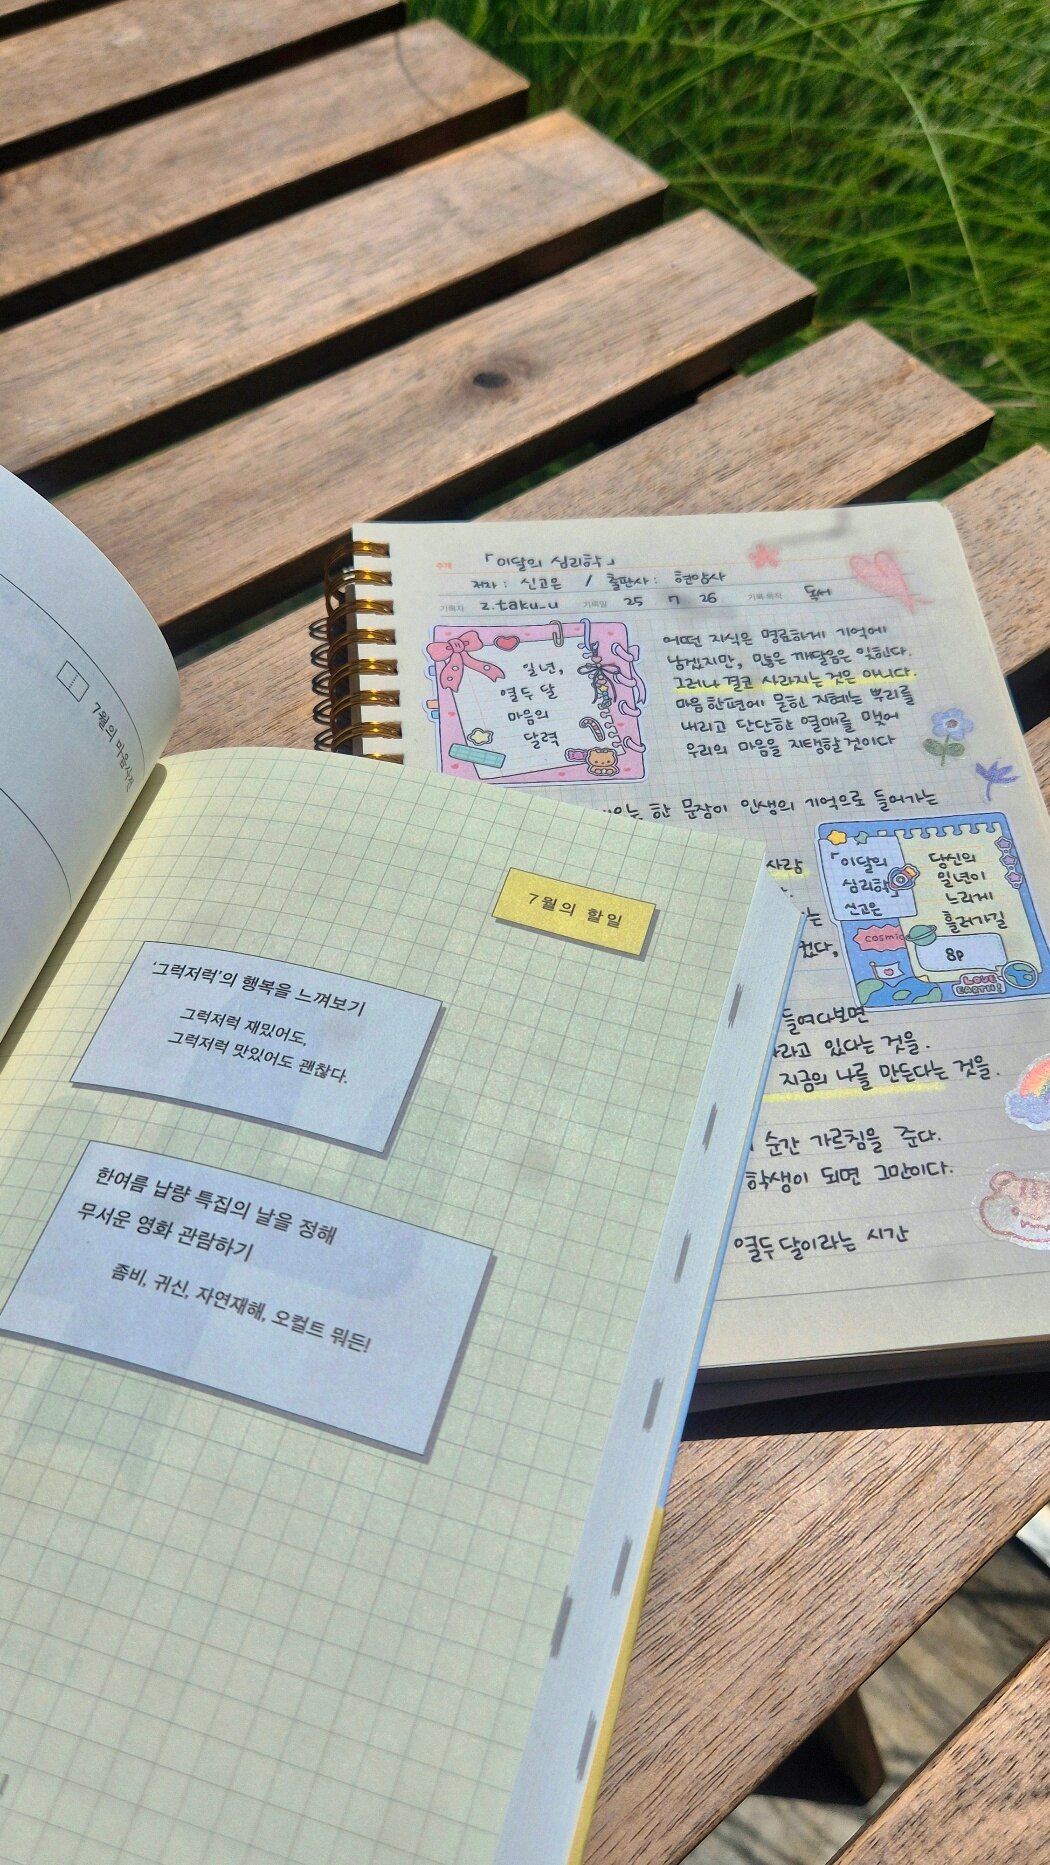 7월의 마음사전
7월의 할 일
'그럭저럭'의 행복을 느껴보기
그럭저럭 재밌어도,
그럭저럭 맛있어도 괜찮다.
한여름 납량 특집의 날을 정해
무서운 영화 관람하기
좀비, 귀신, 자연재해, 오컬트 뭐든!
주제 「이달의 심리학」
저자 : 신고은 / 출판사 : 현암사
기록자 z.taku_u 기록일 25 7 26 기록 목적 독서
일 년,
열두 달
마음의
달력
어떤 지식은 명료하게 기억에
남겠지만, 많은 깨달음은 잊힌다.
그러나 결코 사라지는 것은 아니다.
마음 한편에 묻힌 지혜는 뿌리를
내리고 단단한 열매를 맺어
우리의 마음을 지탱할 것이다
한 문장이 인생의 기억으로 들어가는
사람
「이달의
심리학」
신고은
당신의
일년이
느리게
흘러가길
cosmic
8p
LOVE
EARTH!
들여다보면
있다는 것을.
지금의 나를 만든다는 것을.
순간 가르침을 준다.
학생이 되면 그만이다.
열두 달이라는 시간